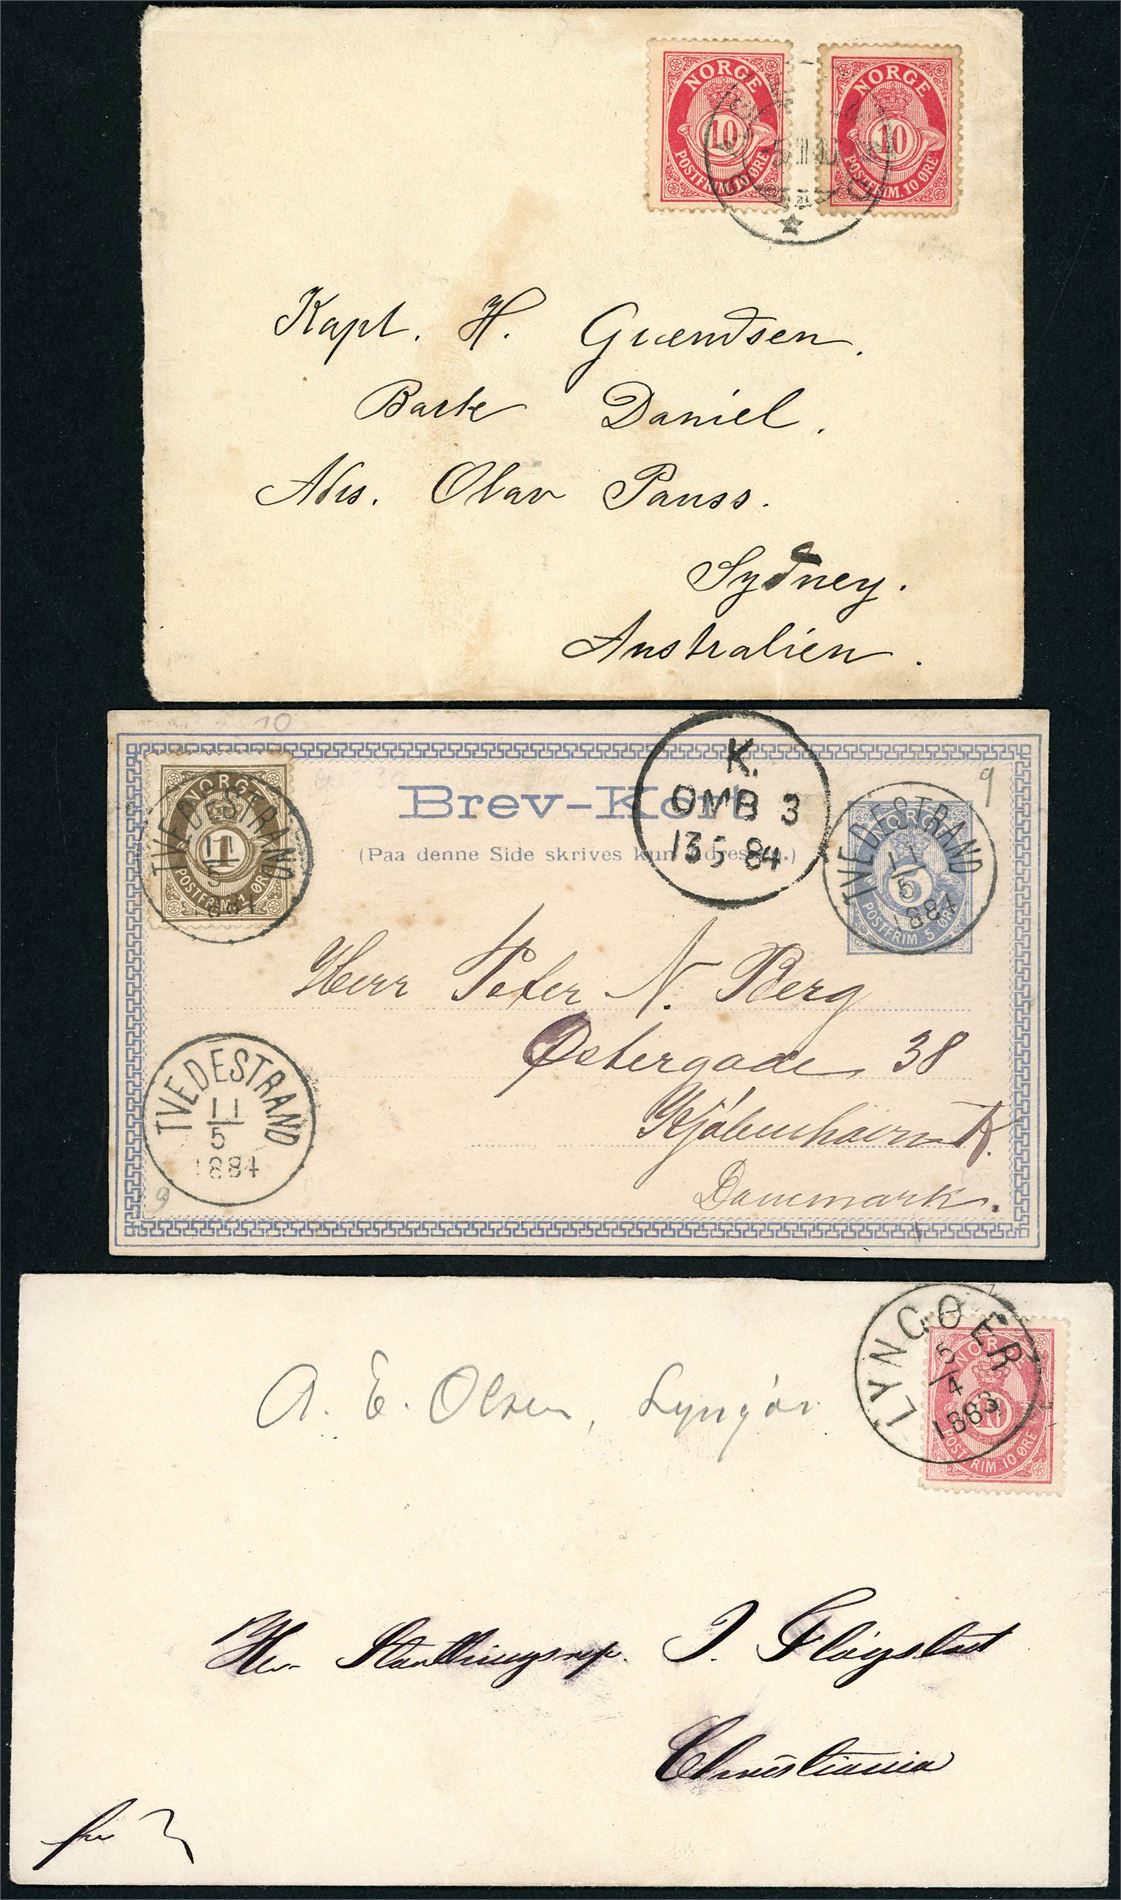 NORGE
10
POSTFRIM. 10 ØRE
NORGE
10
POSTFRIM. 10 ØRE
Kapt. H. Gundersen.
Bark Daniel.
Adrs. Olav Pauss.
Sydney.
Australien.
10
NORGE
1
POSTFRIM. 1 ØRE
TVEDESTRAND
11
5
1884
Brev-Kort
(Paa denne Side skrives kun Adressen.)
K.
OMB 3
13 5 84
9
NORGE
5
POSTFRIM. 5 ØRE
TVEDESTRAND
11
5
1884
Herr Peter N. Berg
Østergade 38
Kjøbenhavn K.
Danmark.
TVEDESTRAND
11
5
1884
9
LYNGØER
5
4
1883
NORGE
10
POSTFRIM. 10 ØRE
A. E. Olsen, Lyngør
Herr J. Fløystad
Christiania